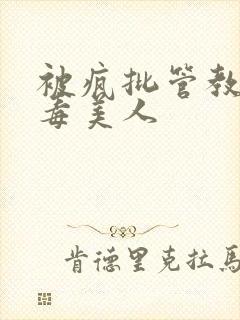 被疯批管教
毒美人
肯德里克拉马